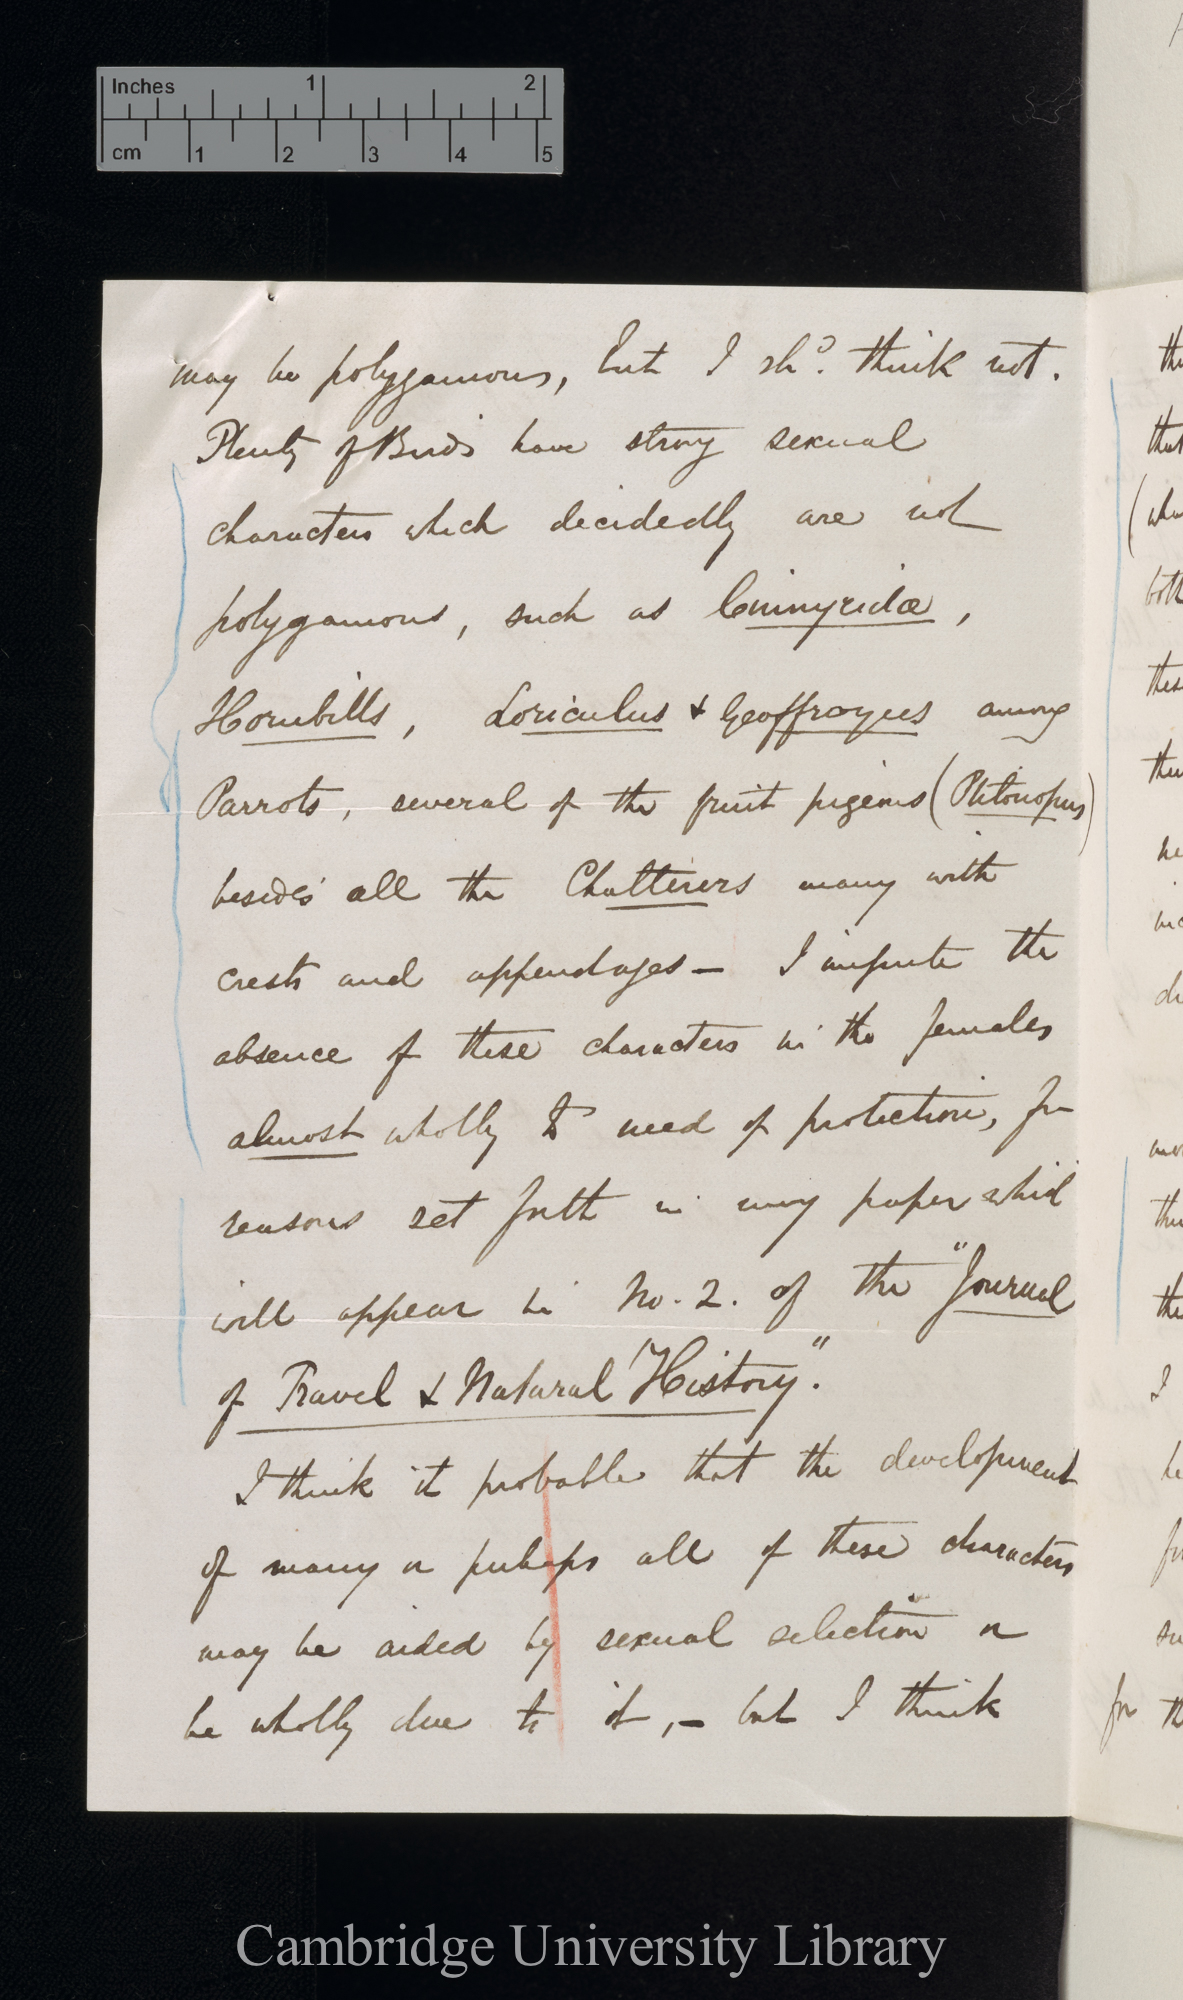 Inches 1 2
cm 1 2 3 4 5
may be polygamous, but I shd. think not.
Plenty of Birds have strong sexual
characters which decidedly are not
polygamous, such as Cinnyridæ,
Hornbills, Loriculus & Geoffroyus among
Parrots, several of the fruit pigeons (Ptilonopus)
besides all the Chatterers many with
crests and appendages — I impute the
absence of these characters in the females
almost wholly to need of protection, for
reasons set forth in my paper which
will appear in No. 2. of the "Journal
of Travel & Natural History".
I think it probable that the development
of many or perhaps all of these characters
may be aided by sexual selection or
be wholly due to it, — but I think
for
Cambridge University Library